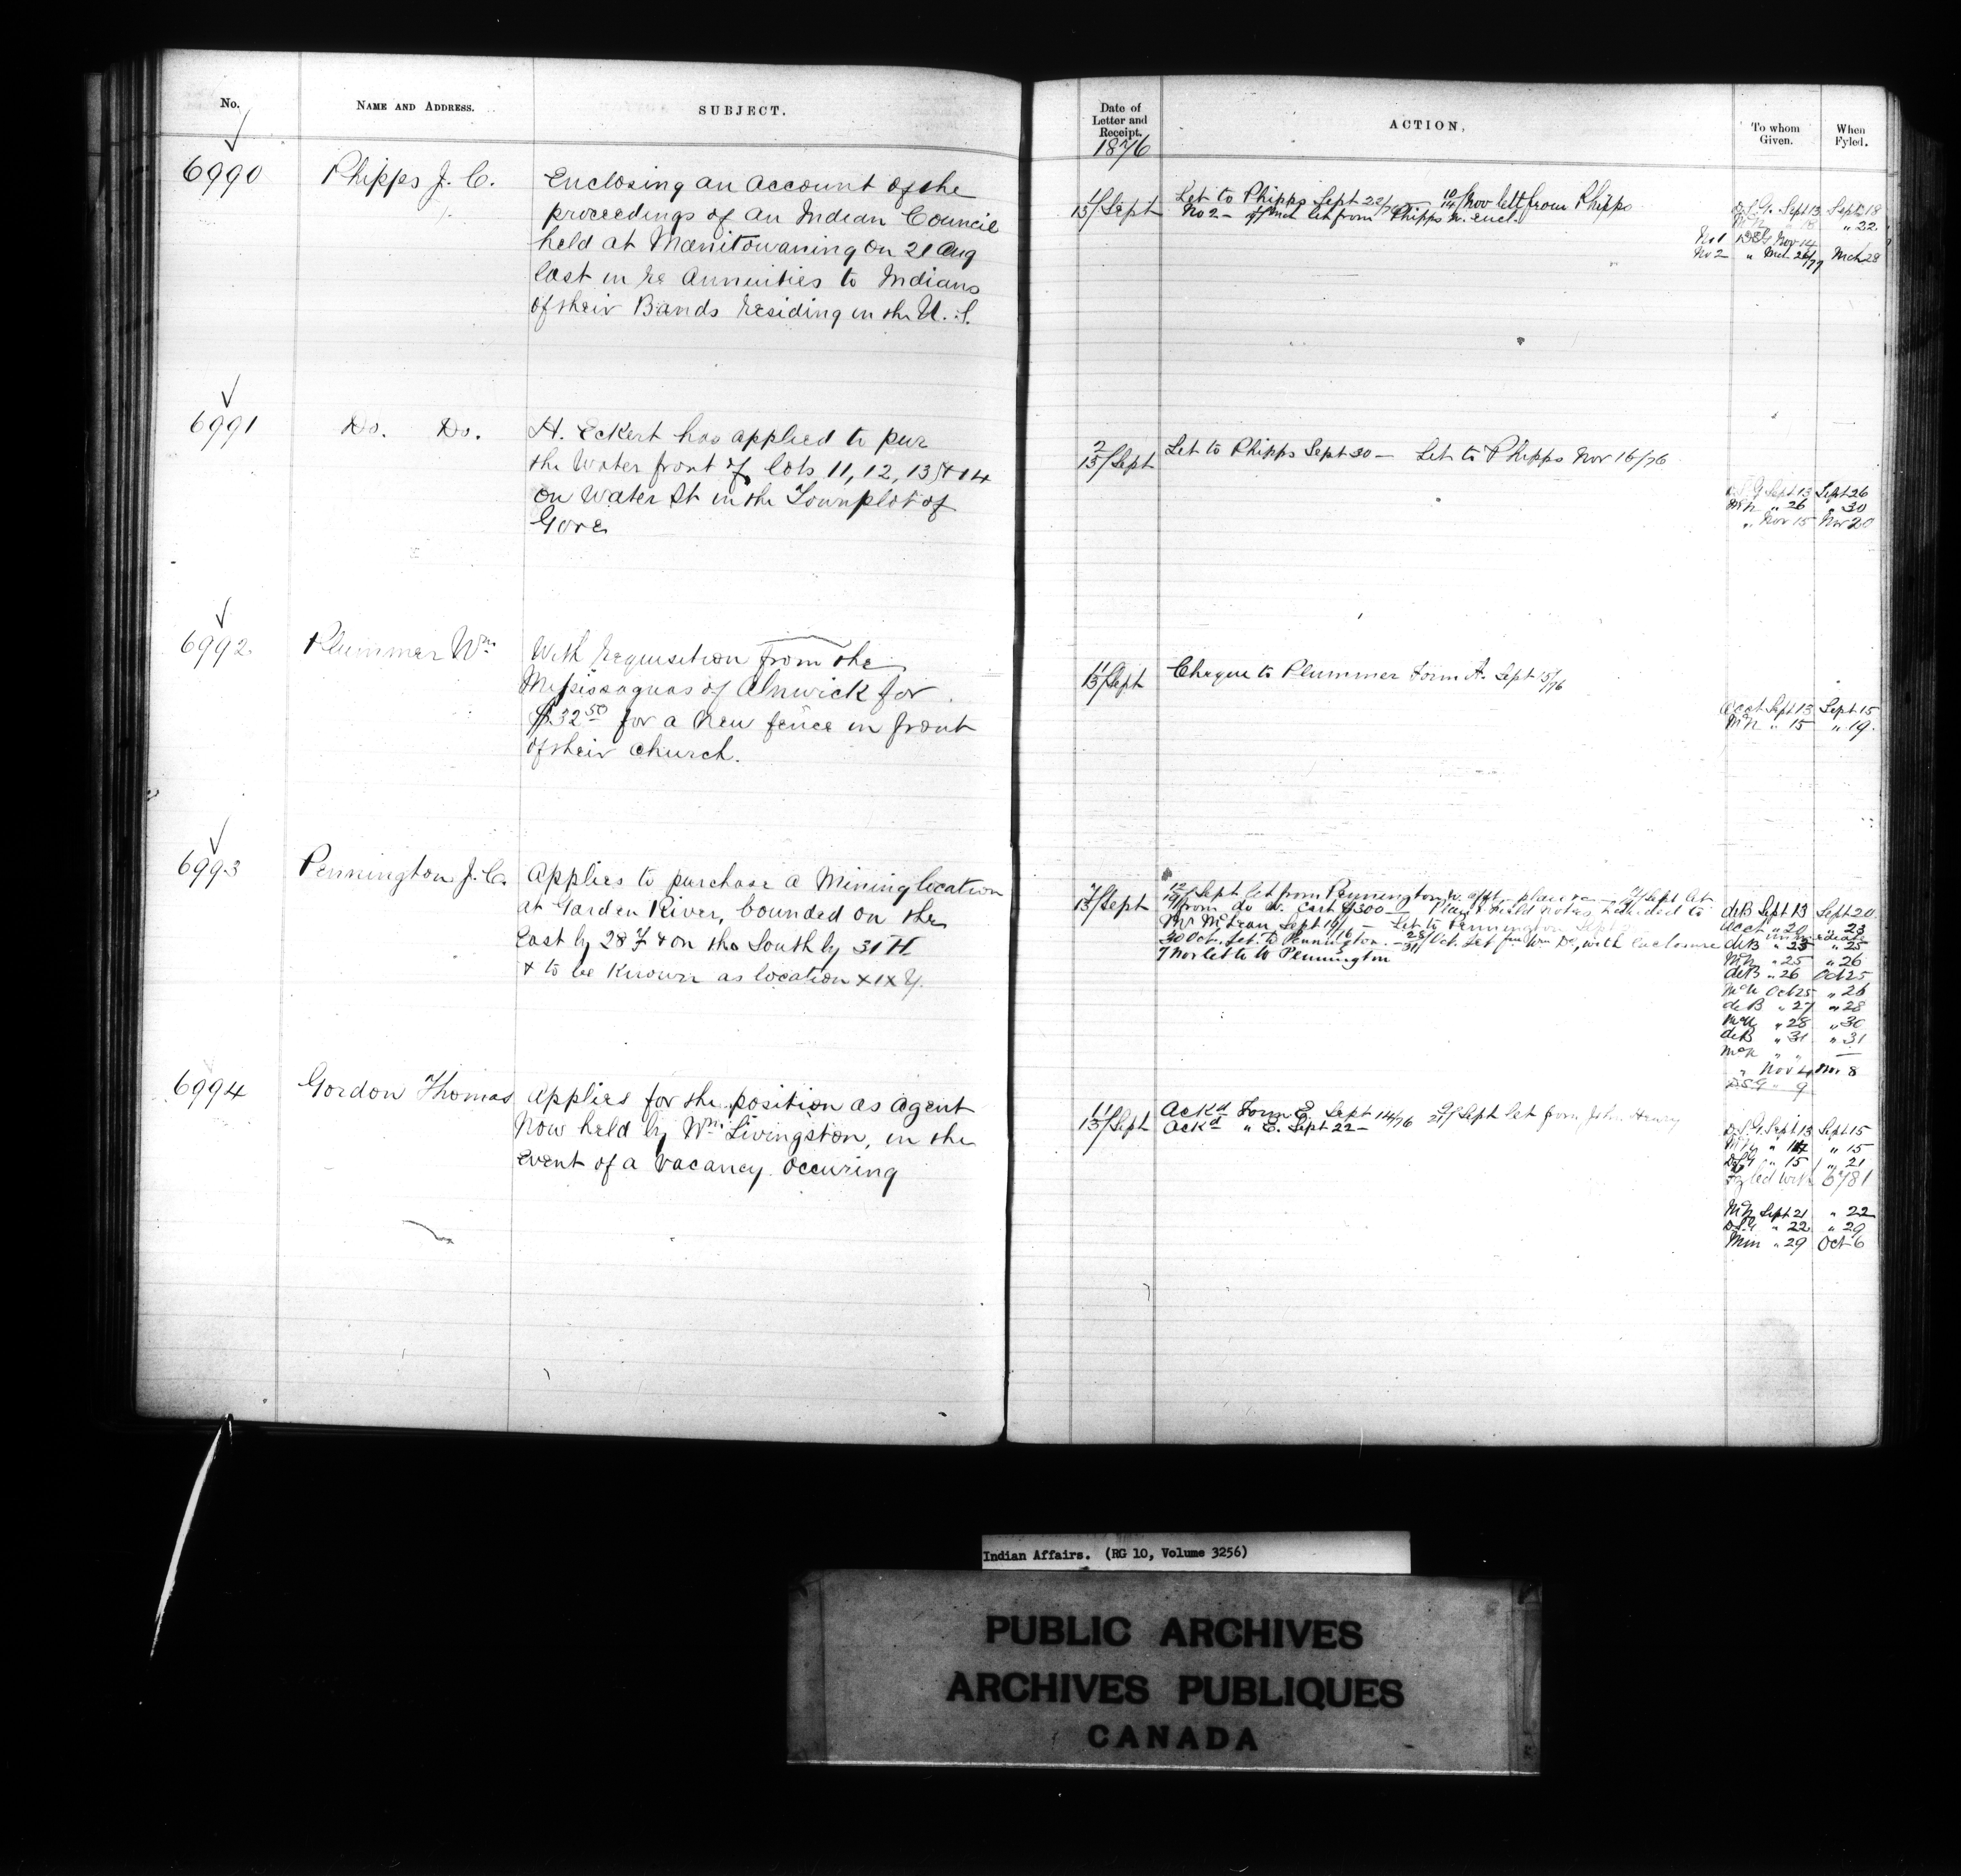 No.
NAME AND ADDRESS.
SUBJECT.
6990
Phipps J. C.
Enclosing an account of the
proceedings of an Indian Council
held at Manitowaning on 21 Aug
last in re Annuities to Indians
of their Bands residing in the U. S.
6991
Do. Do.
H. Eckert has applied to pur
the water front of lots 11, 12, 13, & 14
on Water St in the Townplot of
Gore
6992
Plummer Wm
With requisition from the
Mississaguas of Alnwick for
$32 50 for a new fence in front
of their church.
6993
Pennington J. C.
Applies to purchase a Mining location
at Garden River, bounded on the
East by 28 Z & on the South by 31 H
& to be known as location X1X Y.
6994
Gordon Thomas
Applies for the position as agent
now held by Wm Livingston, in the
event of a vacancy occuring
Date of
Letter and
Receipt.
1876
ACTION.
To whom
Given.
When
Fyled.
13/Sept
Let to Phipps Sept 22/76 — 10/14/Nov lett from Phipps
No 2 — let from Phipps w. encl.
D.S.G. Sept 13 Sept 18
" 22
No 1 Nov 14
No 2 " Mch 26/77 Mch 28
2/13/Sept
Let to Phipps Sept 30 — Let to Phipps Nov 16/76
D.S.G Sept 13 Sept 26
McN " 26 " 30
" Nov 15 Nov 20
11/13/Sept
Cheque to Plummer Form A. Sept 15/76
Acct Sept 13 Sept 15
McN " 15 " 19.
7/13/Sept
12/ Sept let from Pennington w. plan
from do w. Cert $300 — Plan & field notes handed to
Mr McLean Sept 19/ — Let to Pennington Sept
30 Oct. Let. to Pennington. — 28/31/ Oct. Let from Wm Do, with enclosure
7 Nov let to W Pennington
deB Sept 13 Sept 20.
Acct " 20 " 23
immediate
deB " 23 " 25
McN " 25 " 26
deB " 26 Oct 25
McN Oct 25 " 26
deB " 27 " 28
McN " 28 " 30
deB " 31 " 31
McN " " —
" Nov 4 Nov 8
DSG " 9
11/13/Sept
Ackd Form E. Sept 14/76 9/21/ Sept let from John Henry
Ackd " E. Sept 22 —
D.S.G. Sept 13 Sept 15
McN " 14 " 15
DSG " 15 " 21
Fyled with 6781
McN Sept 21 " 22
DSG " 22 " 29
Min " 29 Oct 6
Indian Affairs. (RG 10, Volume 3256)
PUBLIC ARCHIVES
ARCHIVES PUBLIQUES
CANADA